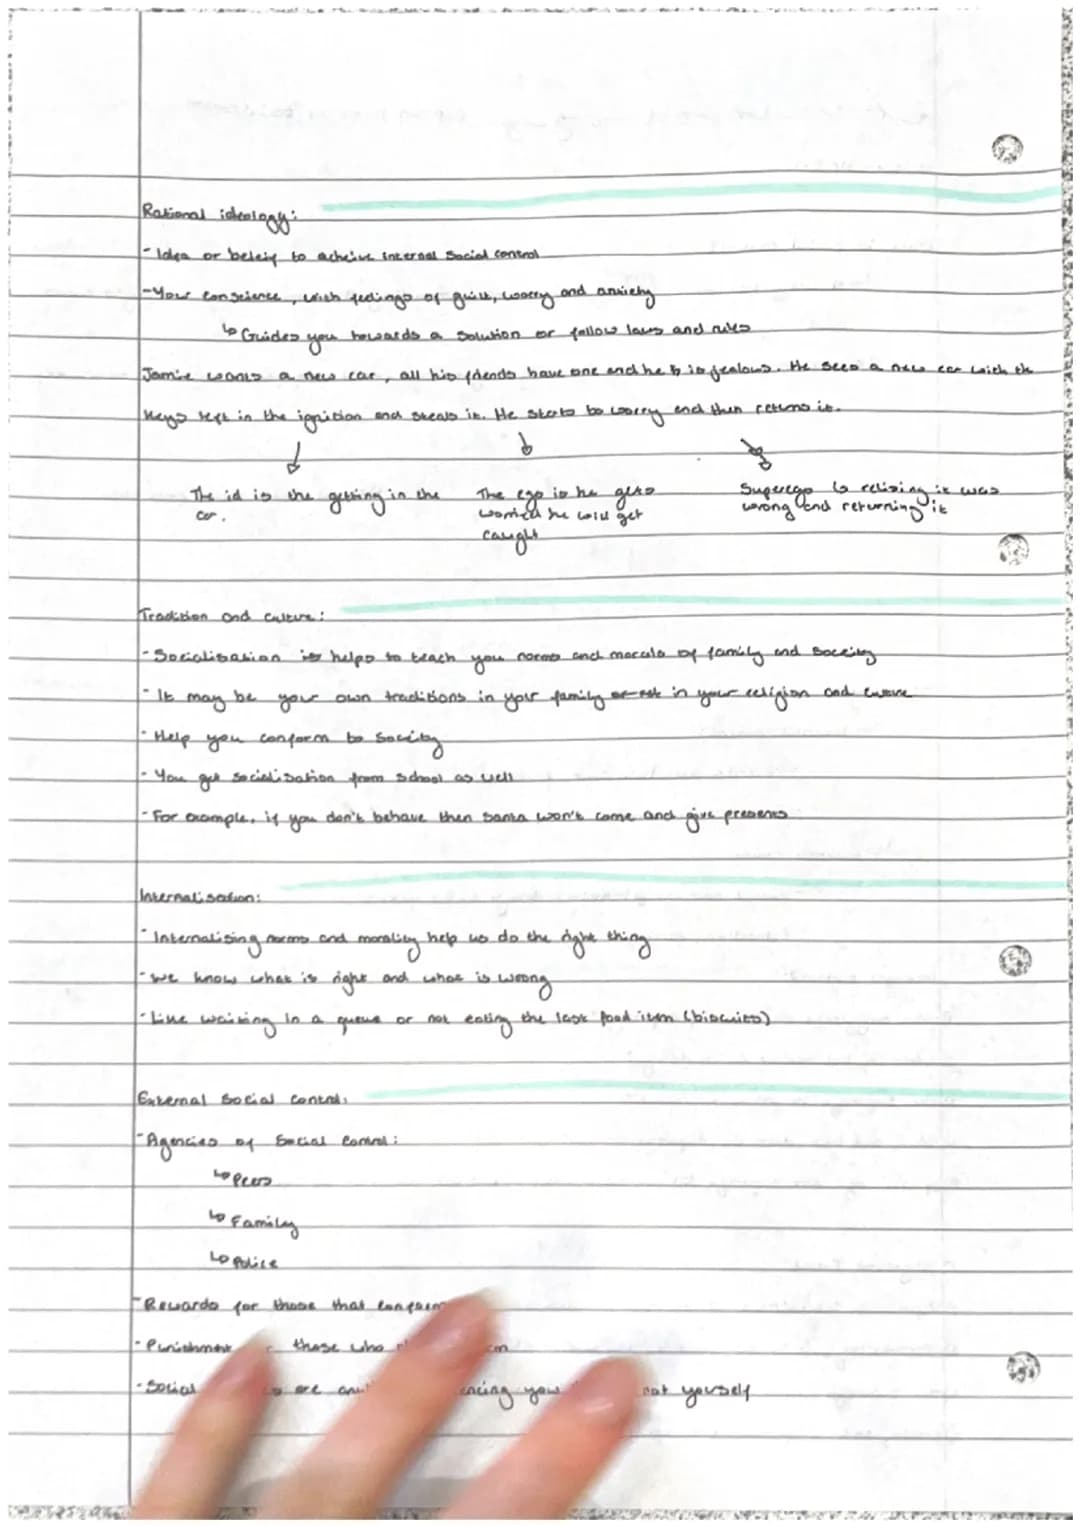 Rational ideology:
- Idea or beleif to acheive internal social control
- Your conscience, with feelings of guilt, worry and anxiety
↳ Guides you towards a solution or follow laws and rules
Jamie wants a new car, all his friends have one and he is jealous. He sees a new car with the
keys left in the ignition and steals it. He starts to worry and then returns it.
The id is the getting in the car.
The ego is he gets worried he will get caught
Superego is relising it was wrong and returning it
Tradition and culture:
- Socialisation helps to teach you norms and morals of family and society
- It may be your own traditions in your family in your religion and culture
- Help you conform to society
- You get socialisation from school as well
- For example, if you don't behave then santa won't come and give presents
Internalisation:
- Internalising norms and morality help us do the right thing
- We know what is right and what is wrong
- Like waiting in a queue or not eating the last food item (biscuits)
External Social Control:
- Agencies of Social Control:
↳ Peers
↳ Family
↳ Police
- Rewards for those that
- Punishment those who
- Social are you not yourself